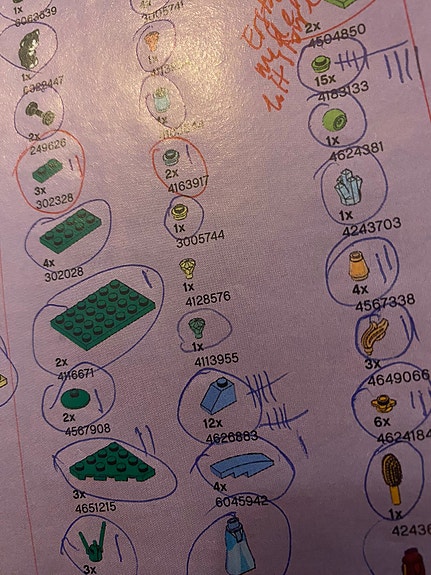 1x
6063639
1x
2x
249626
3x
302328
4x
302028
2x
4116671
2x
4567908
3x
4651215
3x
1x
4x
2x
4163917
1x
3005744
1x
4128576
1x
4113955
12x
4626883
4x
6045942
2x
4504850
15x
4183133
1x
4624381
1x
4243703
4x
4567338
3x
4649066
6x
4624184
1x